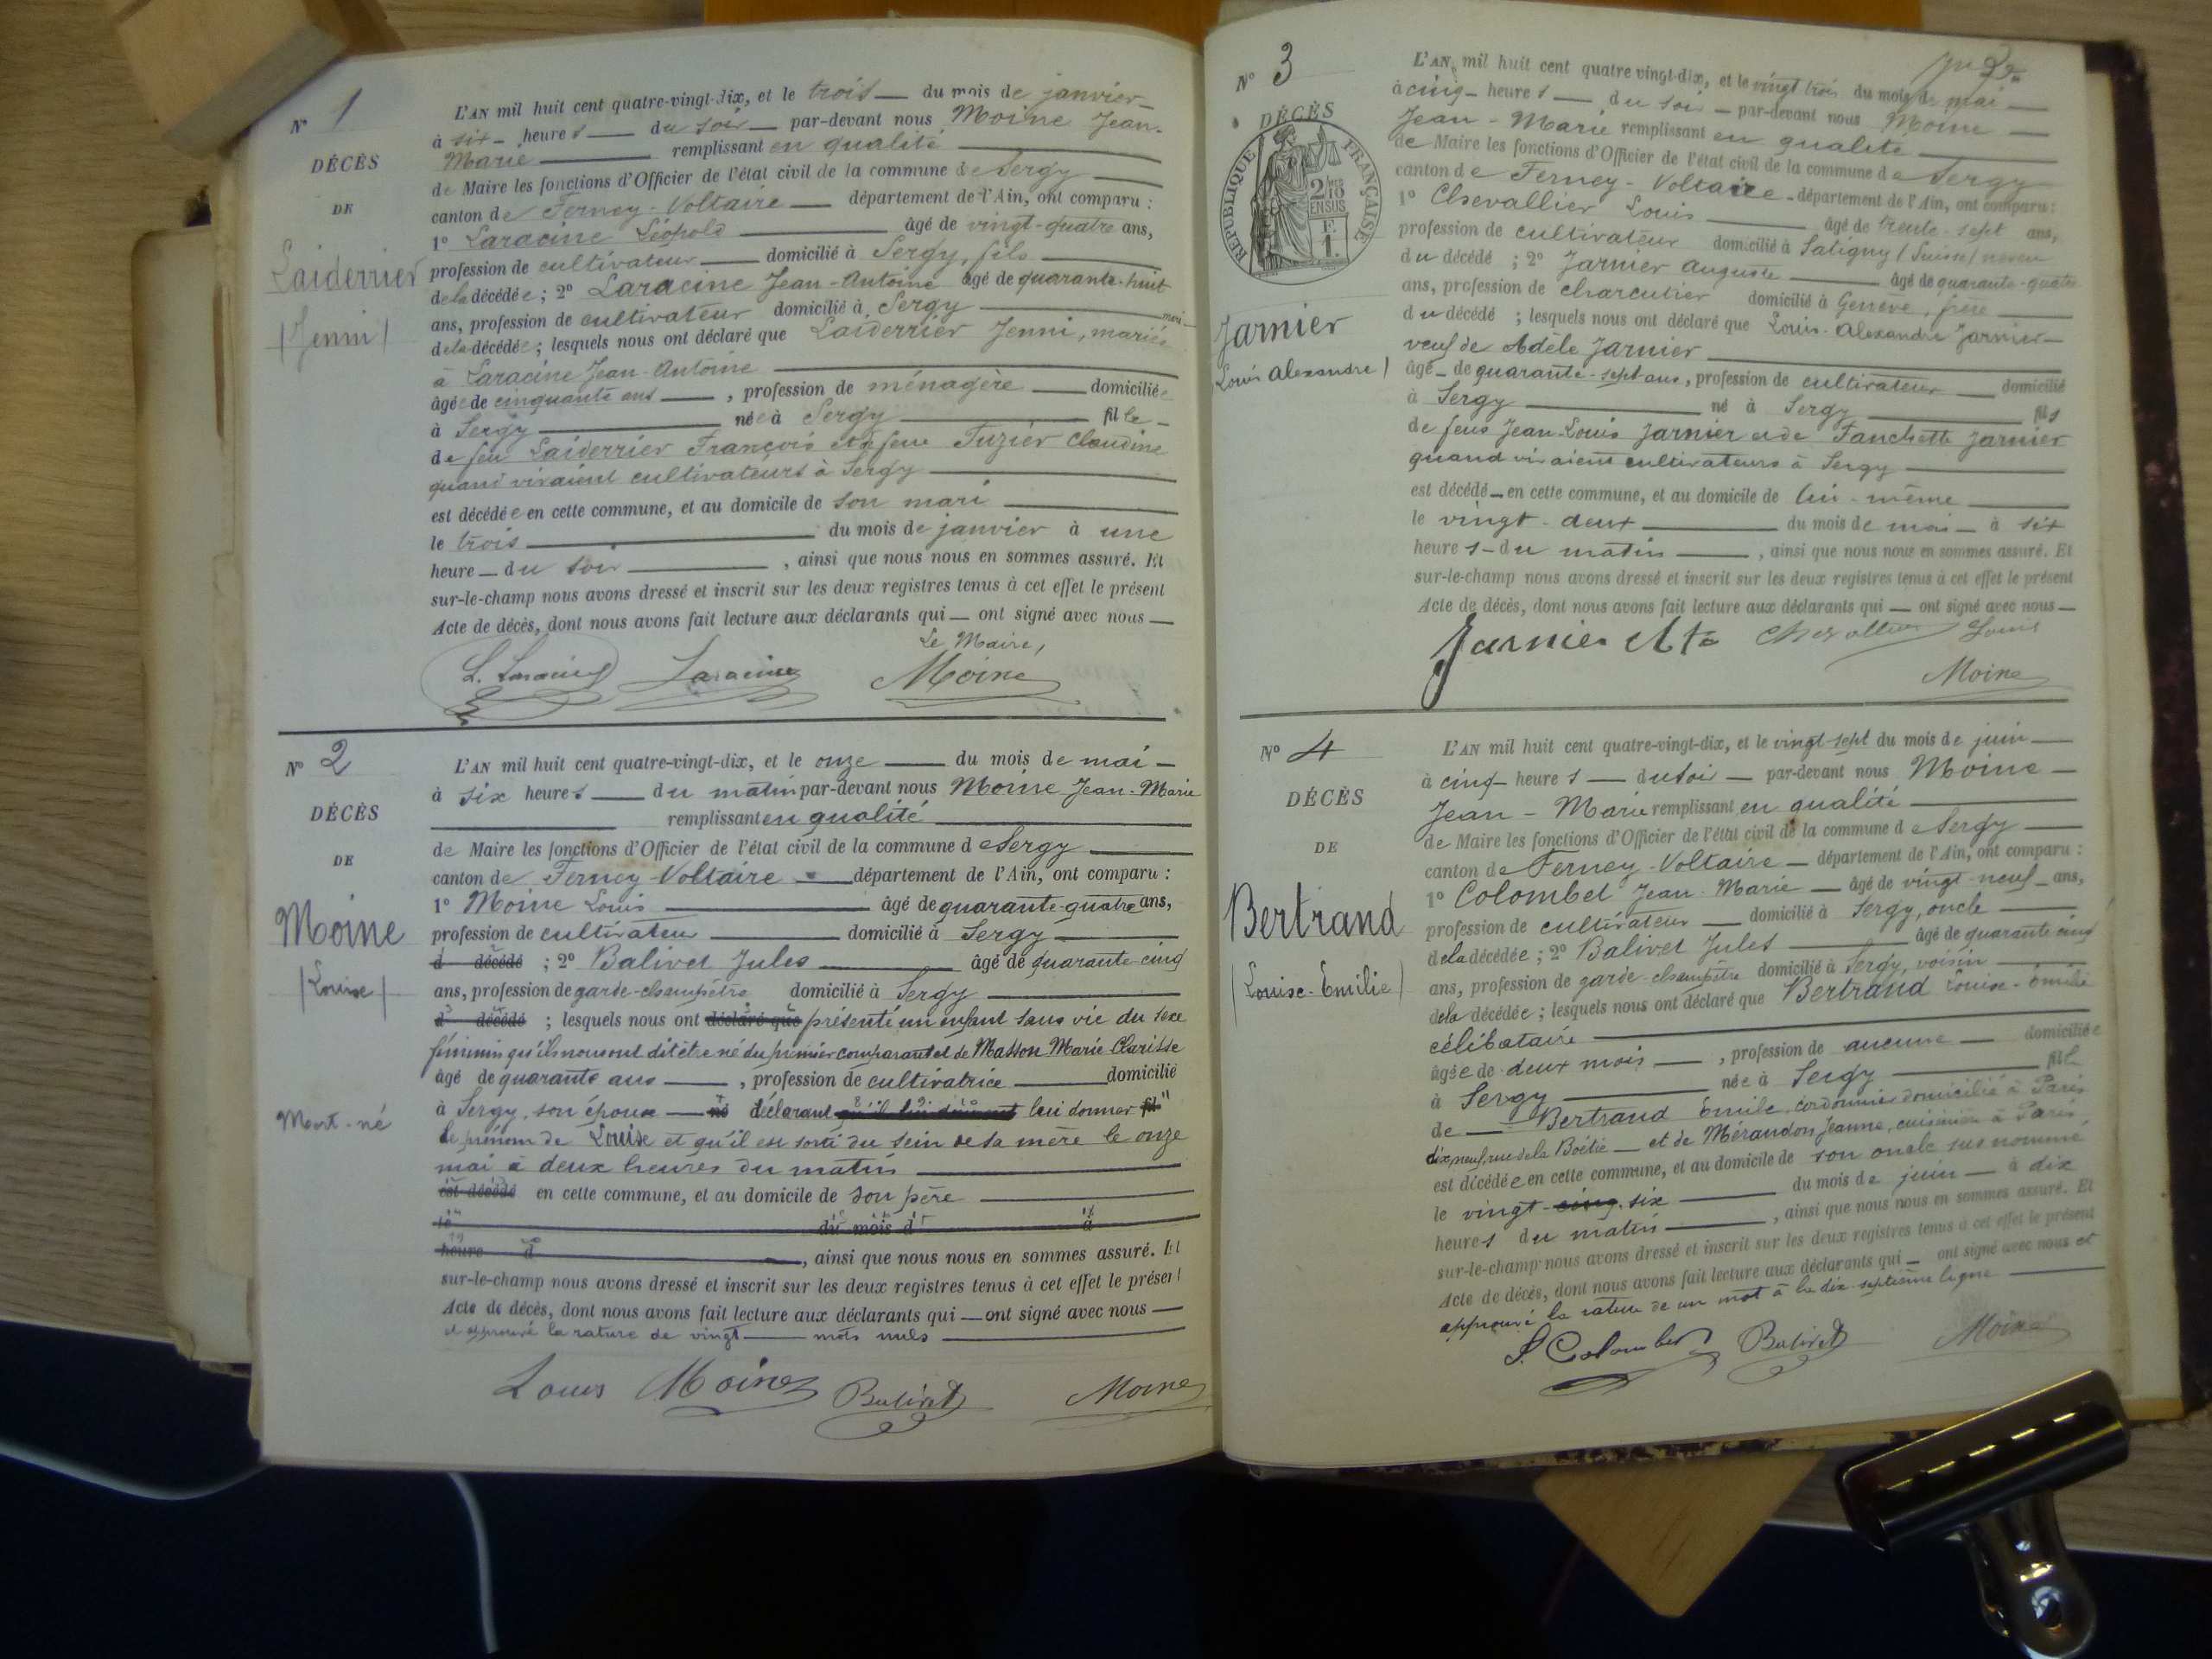 N° 1
DÉCÈS
DE
Laiderrier
(Jenni)
L'AN mil huit cent quatre-vingt-dix, et le trois — du mois de janvier —
à six — heures — du soir — par-devant nous Moine Jean-
Marie — remplissant en qualité —
de Maire les fonctions d'Officier de l'état civil de la commune de Sergy —
canton de Ferney-Voltaire — département de l'Ain, ont comparu :
1° Laracine Léopold — âgé de vingt-quatre ans,
profession de cultivateur — domicilié à Sergy, fils —
de la décédée ; 2° Laracine Jean-Antoine âgé de quarante-huit
ans, profession de cultivateur domicilié à Sergy — mari —
de la décédée ; lesquels nous ont déclaré que Laiderrier Jenni, mariée
à Laracine Jean-Antoine —
âgée de cinquante ans —, profession de ménagère — domiciliée
à Sergy — née à Sergy — fille —
de feu Laiderrier François et de feue Tuzier Claudine
quand vivaient cultivateurs à Sergy —
est décédée en cette commune, et au domicile de son mari —
le trois — du mois de janvier à une
heure — du soir —, ainsi que nous nous en sommes assuré. Et
sur-le-champ nous avons dressé et inscrit sur les deux registres tenus à cet effet le présent
Acte de décès, dont nous avons fait lecture aux déclarants qui — ont signé avec nous —
Le Maire,
L. Laracine Laracine Moine
N° 2
DÉCÈS
DE
Moine
(Louise)
Mort-né
L'AN mil huit cent quatre-vingt-dix, et le onze — du mois de mai —
à six heures — du matin par-devant nous Moine Jean-Marie
— remplissant en qualité —
de Maire les fonctions d'Officier de l'état civil de la commune de Sergy —
canton de Ferney-Voltaire — département de l'Ain, ont comparu :
1° Moine Louis — âgé de quarante-quatre ans,
profession de cultivateur — domicilié à Sergy —
d décédé ; 2° Balivet Jules — âgé de quarante-cinq
ans, profession de garde-champêtre domicilié à Sergy —
d décédé ; lesquels nous ont déclaré que présenté un enfant sans vie du sexe
féminin qu'ils nous ont dit être né du premier comparant et de Masson Marie Clarisse
âgé de quarante ans —, profession de cultivatrice — domicilié
à Sergy, son épouse — né déclarant lui donner fil
le prénom de Louise et qu'il est sorti du sein de sa mère le onze
mai à deux heures du matin —
est décédé en cette commune, et au domicile de son père —
le du mois d à
heure d —, ainsi que nous nous en sommes assuré. Et
sur-le-champ nous avons dressé et inscrit sur les deux registres tenus à cet effet le présent
Acte de décès, dont nous avons fait lecture aux déclarants qui — ont signé avec nous —
et approuvé la rature de vingt — mots nuls —
Louis Moine Balivet Moine
N° 3
DÉCÈS
RÉPUBLIQUE FRANÇAISE
2/10 EN SUS
E
1.
Jarnier
Louis Alexandre)
L'AN, mil huit cent quatre vingt-dix, et le vingt trois du mois de mai —
à cinq — heures — du soir — par-devant nous Moine —
Jean-Marie remplissant en qualité —
de Maire les fonctions d'Officier de l'état civil de la commune de Sergy
canton de Ferney-Voltaire — département de l'Ain, ont comparu :
1° Chevallier Louis — âgé de trente-sept ans,
profession de cultivateur domicilié à Satigny (Suisse) neveu
du décédé ; 2° Jarnier Auguste — âgé de quarante-quatre
ans, profession de charcutier domicilié à Genève, frère
du décédé ; lesquels nous ont déclaré que Louis-Alexandre Jarnier —
veuf de Adèle Jarnier —
âgé — de quarante-sept ans, profession de cultivateur — domicilié
à Sergy — né à Sergy — fils
de feus Jean-Louis Jarnier et de Fanchette Jarnier
quand vivaient cultivateurs à Sergy —
est décédé — en cette commune, et au domicile de lui-même —
le vingt-deux — du mois de mai — à six
heures — du matin —, ainsi que nous nous en sommes assuré. Et
sur-le-champ nous avons dressé et inscrit sur les deux registres tenus à cet effet le présent
Acte de décès, dont nous avons fait lecture aux déclarants qui — ont signé avec nous —
Jarnier Chevallier Louis
Moine
N° 4
DÉCÈS
DE
Bertrand
(Louise-Emilie)
L'AN mil huit cent quatre-vingt-dix, et le vingt-sept du mois de juin —
à cinq — heures — du soir — par-devant nous Moine —
Jean-Marie remplissant en qualité —
de Maire les fonctions d'Officier de l'état civil de la commune de Sergy —
canton de Ferney-Voltaire — département de l'Ain, ont comparu :
1° Colombet Jean-Marie — âgé de vingt-neuf — ans,
profession de cultivateur — domicilié à Sergy, oncle —
de la décédée ; 2° Balivet Jules — âgé de quarante cinq
ans, profession de garde-champêtre domicilié à Sergy, voisin —
de la décédée ; lesquels nous ont déclaré que Bertrand Louise-Emilie
célibataire —
âgée de deux mois —, profession de aucune — domiciliée
à Sergy — née à Sergy — fille
de — Bertrand Emile, cordonnier domicilié à Paris
dix neuf, rue de la Boëtie — et de Mérandon Jeanne, cuisinière à Paris
est décédée en cette commune, et au domicile de son oncle sus nommé
le vingt-cinq six — du mois de juin — à dix
heures du matin —, ainsi que nous nous en sommes assuré. Et
sur-le-champ nous avons dressé et inscrit sur les deux registres tenus à cet effet le présent
Acte de décès, dont nous avons fait lecture aux déclarants qui — ont signé avec nous et
approuvé la rature de un mot à la dix-septième ligne —
Colombet Balivet Moine